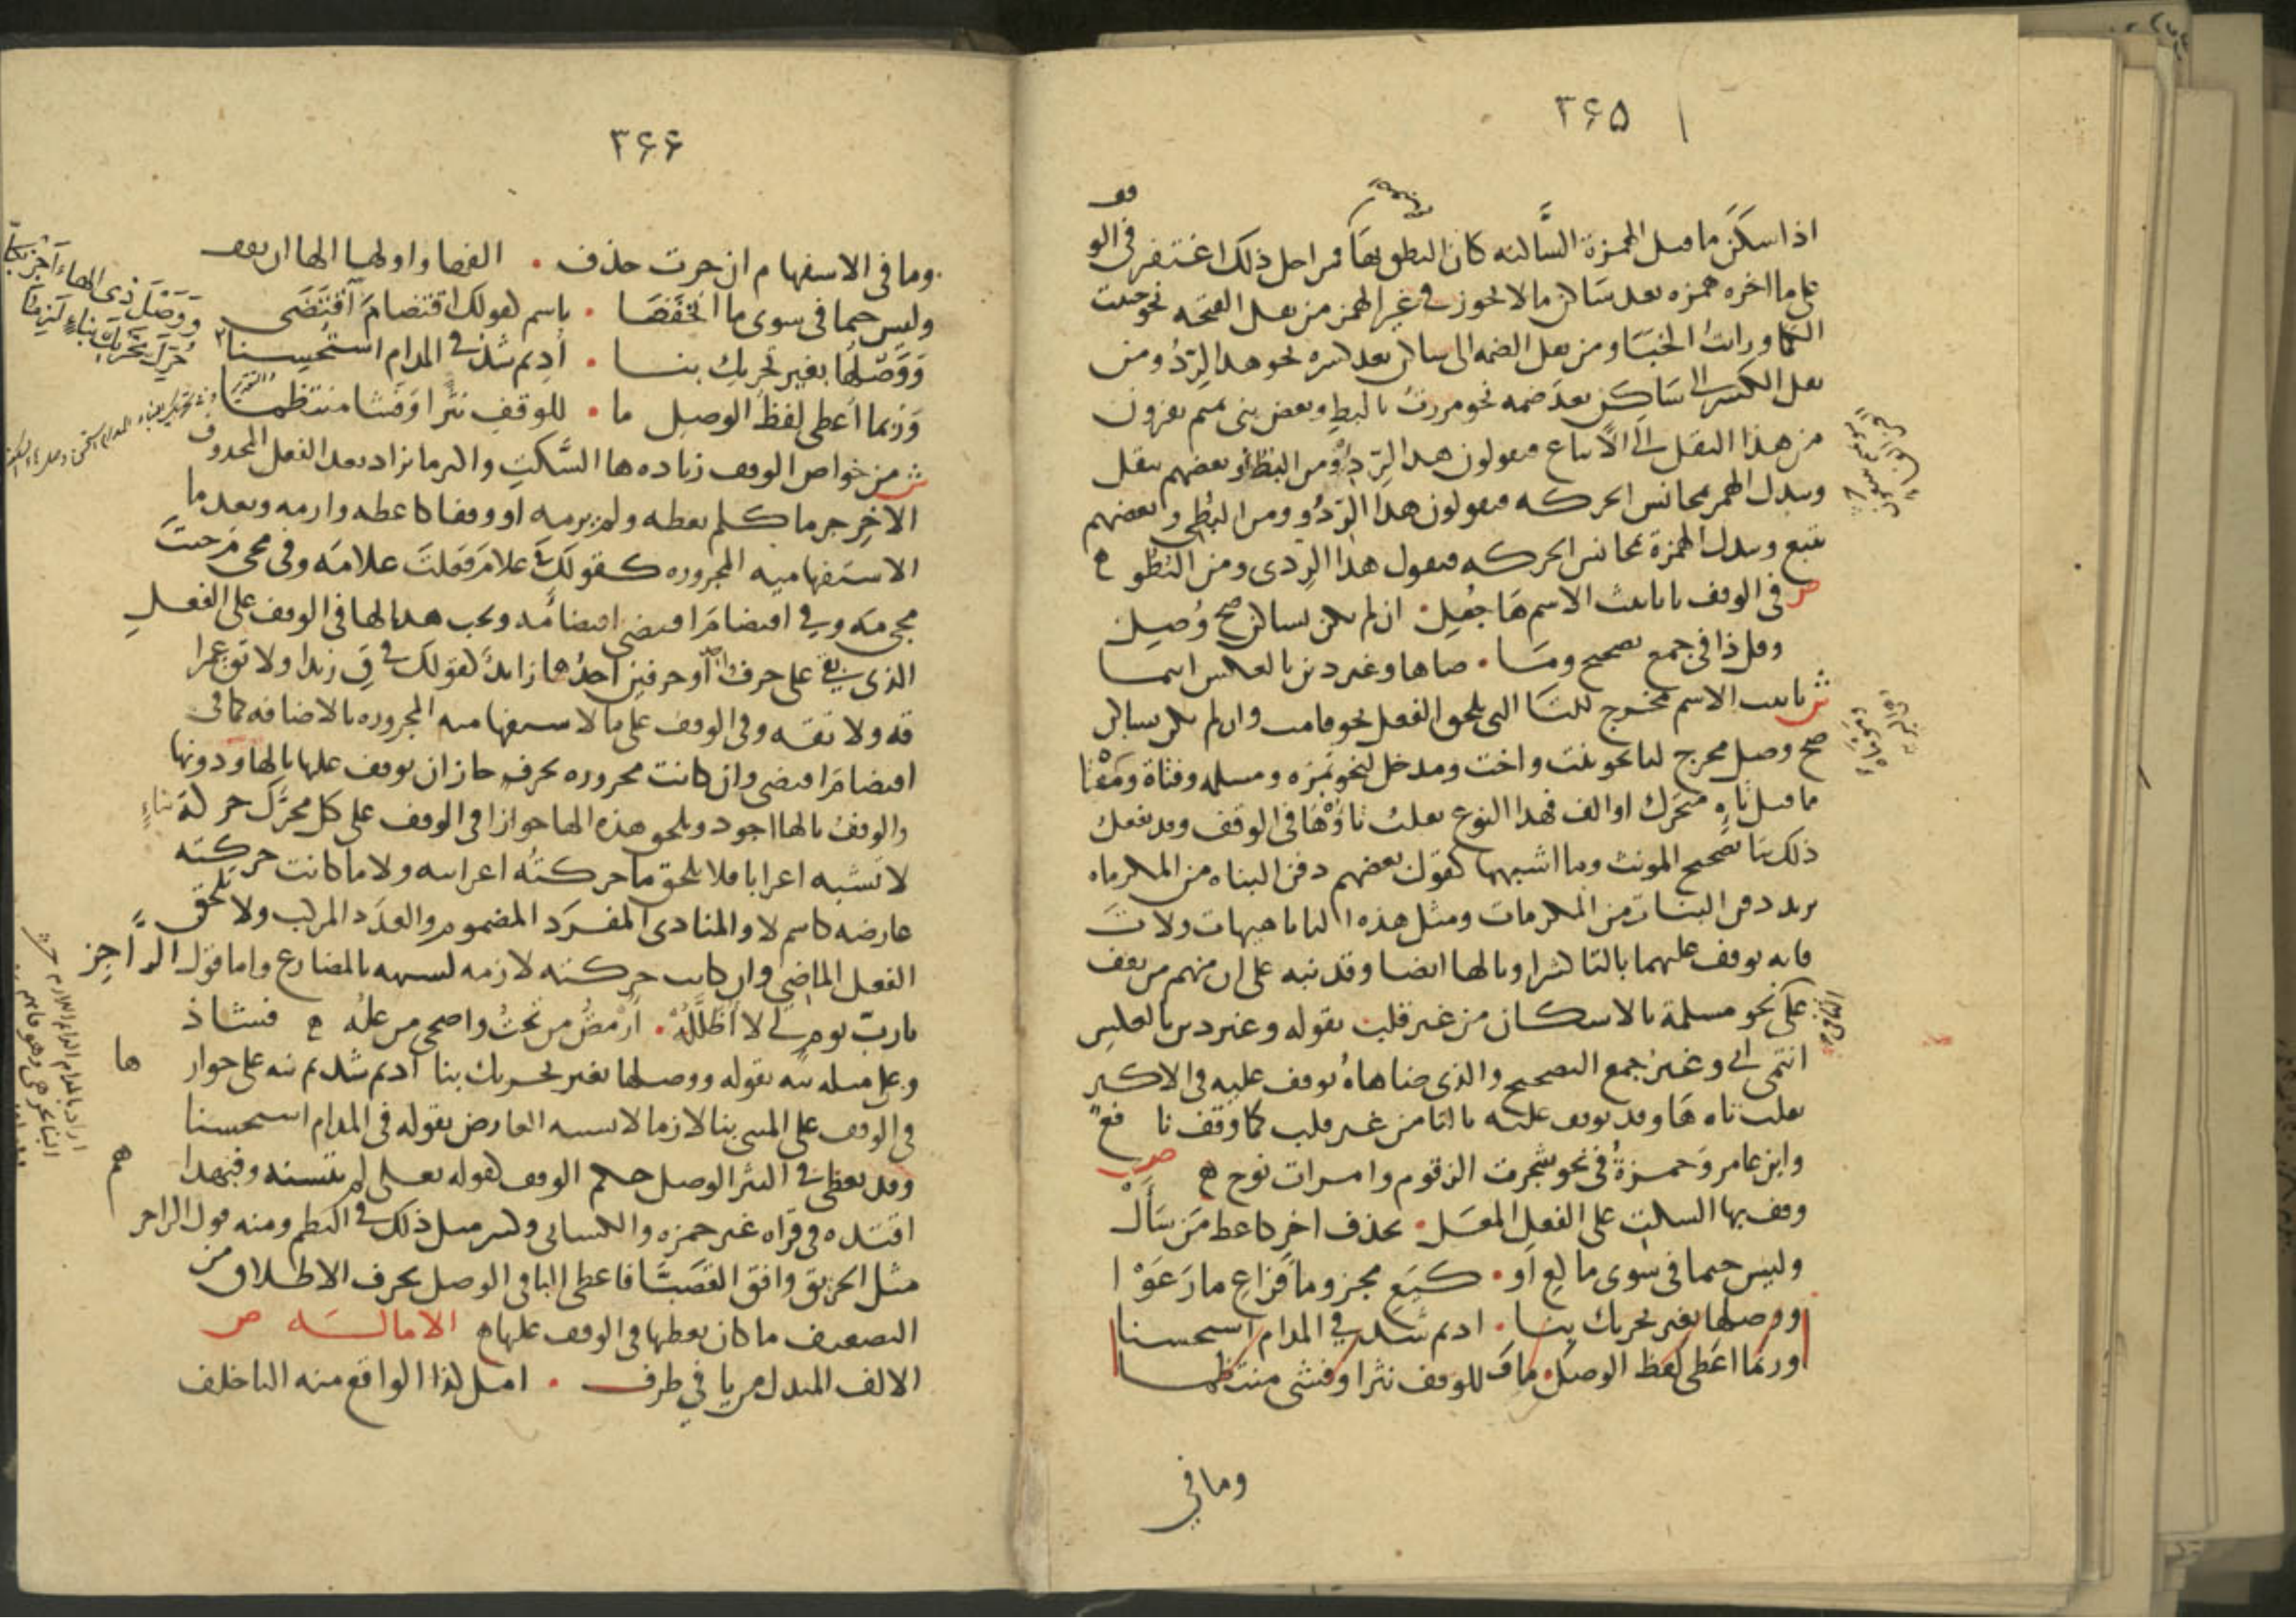 ٣۶۵
اذا سكن ما قبل الهمزة الساكنه كان النطق بها فمن اجل ذلك اغتفر فى الوقف
على ما اخره همزه بعد ساكن ما لا يجوز فى غير الهمز من نقل الفتحه نحو جنيت
الكما ورايت الخبا ومن نقل الضمه الى ساكن بعد كسره نحو هدا الردء ومن
نقل الكسر الى ساكن بعد ضمه نحو مررت بالبطء وبعض بنى تميم يفرون
من هذا النقل الى الاتباع فيقولون هدا الردء ومن البطء وبعضهم ينقل
ويبدل الهمز بمجانس الحركه فيقولون هدا الردو ومن البطى وبعضهم
يتبع ويبدل الهمزة بمجانس الحركه فيقول هدا الردى ومن البطو ه
ص فى الوقف تا تانيث الاسم ها جعل • ان لم يكن بساكن صح وصل
وقل ذا فى جمع تصحيح وما • ضاهى وغير ذين بالعكس انتمى
ش تانيث الاسم مخرج للتا التى تلحق الفعل نحو قامت وان لم يكن بساكن
صح وصل مخرج لتا نحو بنت واخت ومدخل لنحو تمره ومسلمه وفتاة
ما قبل تاه متحرك او الف فهدا النوع تقلب تاؤها فى الوقف وقد تفعل
ذلك بتا تصحيح المونث وما اشبهها كقول بعضهم دفن البناه من المكرماه
يريد دفن البنات من المكرمات ومثل هذه التا تا هيهات ولات
فانه يوقف عليهما بالتا كثيرا وبالها ايضا وقد نبه على ان منهم من يقف
على نحو مسلمة بالاسكان من غير قلب بقوله وغير ذين بالعكس
انتمى اى وغير جمع التصحيح والذى ضاهاه يوقف عليه فى الاكثر
بقلب تاه ها وقد يوقف عليه بالتا من غير قلب كما وقف نافع
وابن عامر وحمزة فى نحو شجرت الزقوم وامرات نوح ه ص
وقف بها السكت على الفعل المعل • بحذف اخر كاعط من سأل
وليس حتما فى سوى ما كع او • كيع مجزوما فراع ما رعوا
ووصلها بغير تحريك بنا • اديم شذ فى المدام استحسنا
وربما اعطى لفظ الوصل ما للوقف نثرا وفشى منتظما
وما فى
٣۶۶
وما فى الاستفهام ان جرت حذف • الفها واولها الها ان تقف
وليس حتما فى سوى ما انخفضا • باسم كقولك اقتضا م اقتضى
ووصلها بغير تحريك بنا • اديم شذ فى المدام استحسنا
وربما اعطى لفظ الوصل ما • للوقف نثرا وفشا منتظما
ووصل ذى الهاء اجز بكل
حرك تحريك بناء لزما
ش من خواص الوقف زياده ها السكت واكثر ما تزاد بعد الفعل المحذوف
الاخر جزما كلم يعطه ولم يرمه او وقفا كاعطه وارمه وبعد ما
الاستفهاميه المجروره كقولك فى علام فعلت علامه وفى مجى م جيت
مجى مه وفى اقتضا م اقتضى اقتضا مه ويجب هذا لها فى الوقف على الفعل
الذى بقى على حرف او حرفين احدهما زايد كقولك فى ق زيدا ولا تق عمرا
قه ولا تقه وفى الوقف على ما الاستفهاميه المجروره بالاضافه كما فى
اقتضا م اقتضى وان كانت مجروره بحرف جاز ان يوقف عليها بالها ودونها
والوقف بالها اجود ويلحق هذه الها جوازا فى الوقف على كل محرك حركة بناء
لا تشبه اعرابا فلا يلحق ما حركته اعرابيه ولا ما كانت حركته
عارضه كاسم لا والمنادى المفرد المضموم والعدد المركب ولا تلحق
الفعل الماضى وان كانت حركته لازمه لشبهه بالمضارع واما قول الراجز
يا رب يوم لى لا اظلله • ارمض من تحت واضحى من عله ه فشاذ
وعلى مثله نبه بقوله ووصلها بغير تحريك بنا اديم شذ ثم نبه على جواز ها
فى الوقف على المبنى بنا لازما لا يشبه العارض بقوله فى المدام استحسنا
وقد يعطى فى النثر الوصل حكم الوقف كقوله تعلى لم يتسنه وفبهداهم
اقتده فى قراه غير حمزه والكسائى وكثر مثل ذلك فى النظم ومنه قول الراجز
مثل الحريق وافق القصبا فاعطى البا فى الوصل بحرف الاطلاق من
التضعيف ما كان يعطها فى الوقف عليها ه الامالـه ص
الالف المبدل من يا فى طرف • امل كذا الواقع منه اليا خلف